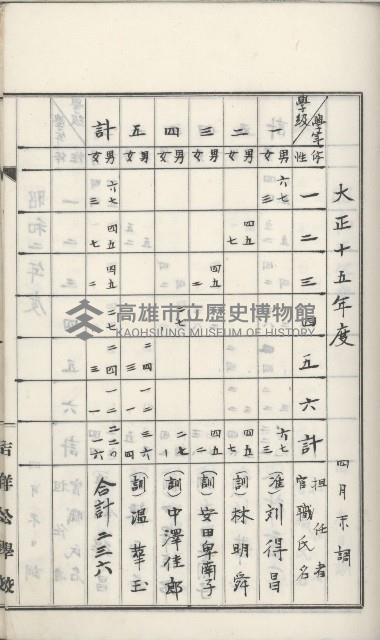 大正十五年度 四月末調
學年 學級 性 一 二 三 四 五 六 計 擔任者 官職氏名
一 男 六七 六七 (准)劉得昌
女 三 三
二 男 四五 四五 (訓)林明舜
女 七 七
三 男 四五 四五 (訓)安田卑南子
女 二 二
四 男 二七 二七 (訓)中澤佳郎
女
五 男 二四 一二 三六 (訓)溫華玉
女 三 一 四
計 男 六七 四五 四五 二七 二四 一二 二二〇 合計 二三六
女 三 七 二 三 一 一六
吉洋公學校
高雄市立歷史博物館
KAOHSIUNG MUSEUM OF HISTORY